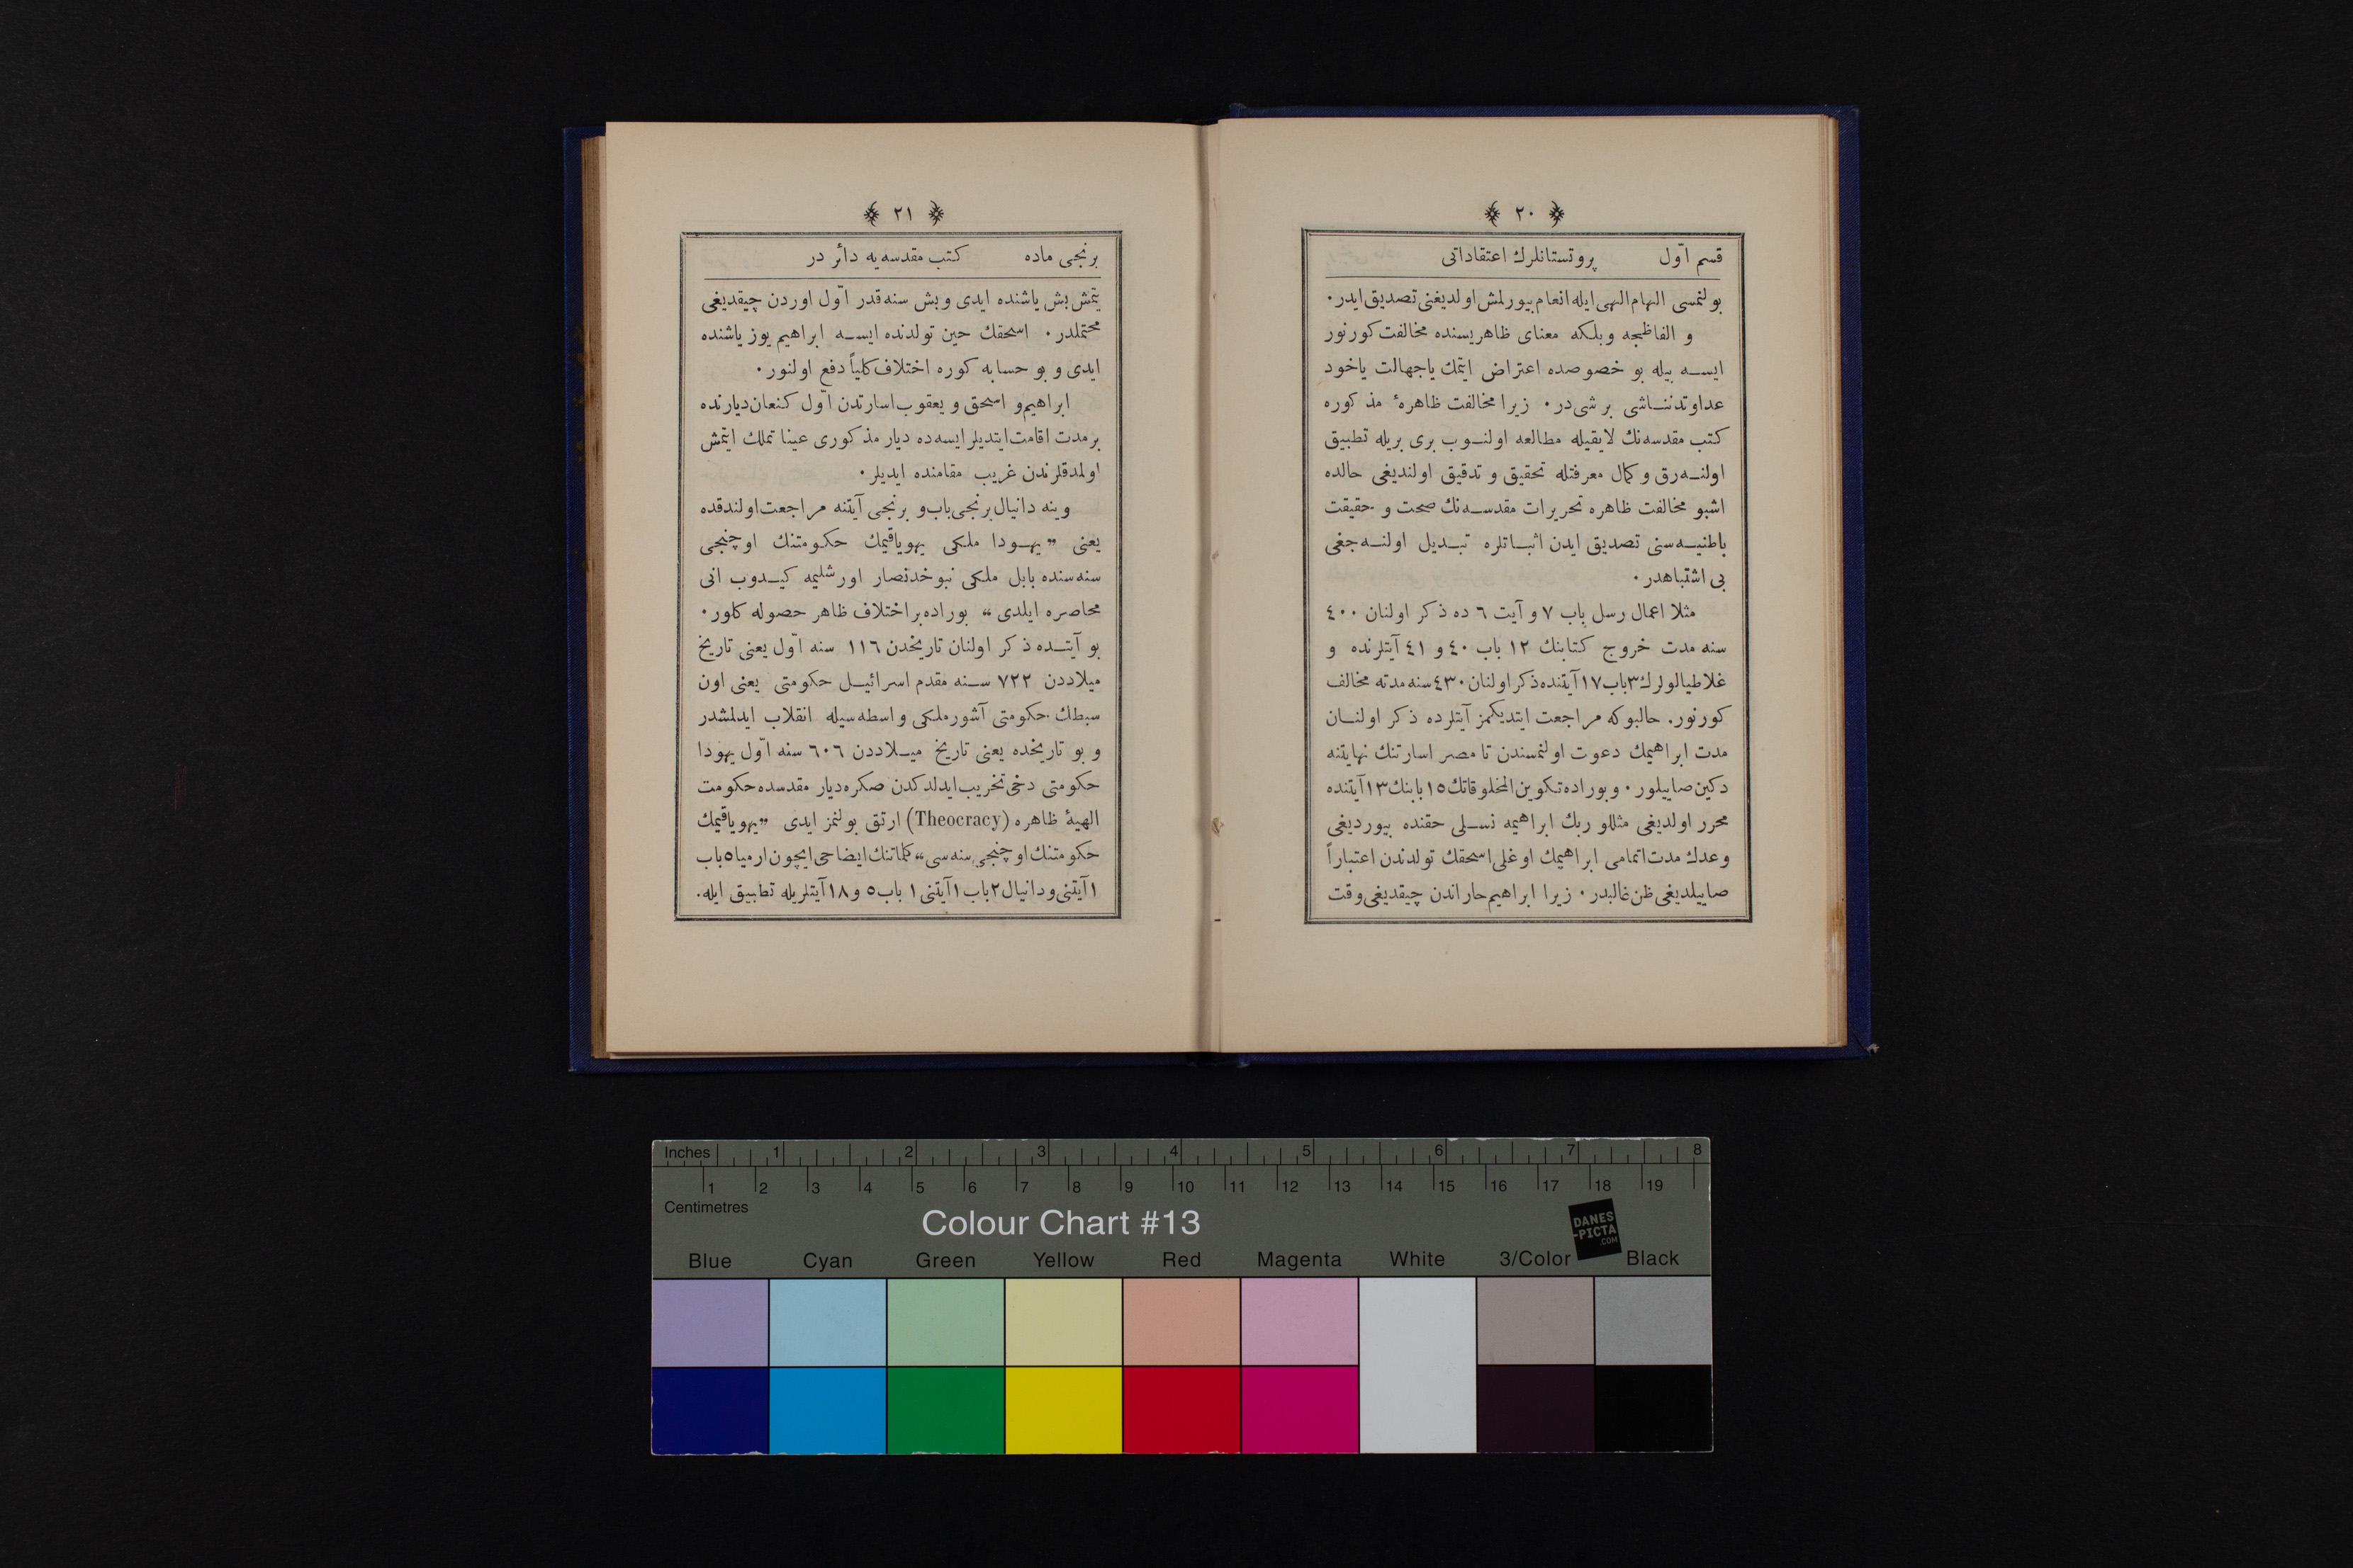 ﴿ ٢٠ ﴾
قسم اوّل پروتستانلرك اعتقاداتی
بولنمسی الهام الهی ایله انعام بیورلمش اولدیغنی تصدیق ایدر٠
و الفاظجه و بلکه معنای ظاهریسنده مخالفت کورنور
ایسه بیله بو خصوصده اعتراض ایتمك یا جهالت یاخود
عداوتدن ناشی بر شی در٠ زیرا مخالفت ظاهرهٔ مذکوره
کتب مقدسه‌نك لایقیله مطالعه اولنوب بری بریله تطبیق
اولنه‌رق و کمال معرفتله تحقیق و تدقیق اولندیغی حالده
اشبو مخالفت ظاهره تحریرات مقدسه‌نك صحت و حقیقت
باطنیه‌سنی تصدیق ایدن اثباتلره تبدیل اولنه‌جغی
بی اشتباهدر٠
مثلا اعمال رسل باب ٧ و آیت ٦ ده ذکر اولنان ٤٠٠
سنه مدت خروج کتابنك ١٢ باب ٤٠ و ٤١ آیتلرنده و
غلاطیالولرك ٣ باب ١٧ آیتنده ذکر اولنان ٤٣٠ سنه مدته مخالف
کورنور. حالبوکه مراجعت ایتدیکمز آیتلرده ذکر اولنان
مدت ابراهیمك دعوت اولنمسندن تا مصر اسارتنك نهایتنه
دکین صاییلور٠ و بوراده تکوین المخلوقاتك ١٥ بابنك ١٣ آیتنده
محرر اولدیغی مثللو ربك ابراهیمه نسلی حقنده بیوردیغی
وعدك مدت اتمامی ابراهیمك اوغلی اسحقك تولدندن اعتباراً
صاییلدیغی ظن غالبدر٠ زیرا ابراهیم حاراندن چیقدیغی وقت
﴿ ٢١ ﴾
برنجی ماده کتب مقدسه‌یه دائر در
یتمش بش یاشنده ایدی و بش سنه قدر اوّل اوردن چیقدیغی
محتملدر٠ اسحقك حین تولدنده ایسه ابراهیم یوز یاشنده
ایدی و بو حسابه کوره اختلاف کلیاً دفع اولنور٠
ابراهیم و اسحق و یعقوب اسارتدن اوّل کنعان دیارنده
بر مدت اقامت ایتدیلر ایسه ده دیار مذکوری عینا تملك ایتمش
اولمدقلرندن غریب مقامنده ایدیلر٠
وینه دانیال برنجی باب و برنجی آیتنه مراجعت اولندقده
یعنی „یهودا ملکی یهویاقیمك حکومتنك اوچنجی
سنه سنده بابل ملکی نبوخدنصار اورشلیمه کیدوب انی
محاصره ایلدی“ بوراده بر اختلاف ظاهر حصوله کلور٠
بو آیتده ذکر اولنان تاریخدن ١١٦ سنه اوّل یعنی تاریخ
میلاددن ٧٢٢ سنه مقدم اسرائیل حکومتی یعنی اون
سبطك حکومتی آشور ملکی واسطه‌سیله انقلاب ایدلمشدر
و بو تاریخده یعنی تاریخ میلاددن ٦٠٦ سنه اوّل یهودا
حکومتی دخی تخریب ایدلدکدن صکره دیار مقدسده حکومت
الهیهٔ ظاهره (Theocracy) ارتق بولنمز ایدی „یهویاقیمك
حکومتنك اوچنجی سنه سی“ کلماتنك ایضاحی ایچون ارمیا ٥ باب
١ آیتنی و دانیال ٢ باب ١ آیتنی ١ باب ٥ و ١٨ آیتلریله تطبیق ایله.
Inches 1 2 3 4 5 6 7 8
1 2 3 4 5 6 7 8 9 10 11 12 13 14 15 16 17 18 19
Centimetres
Colour Chart #13
DANES
-PICTA
.COM
Blue Cyan Green Yellow Red Magenta White 3/Color Black